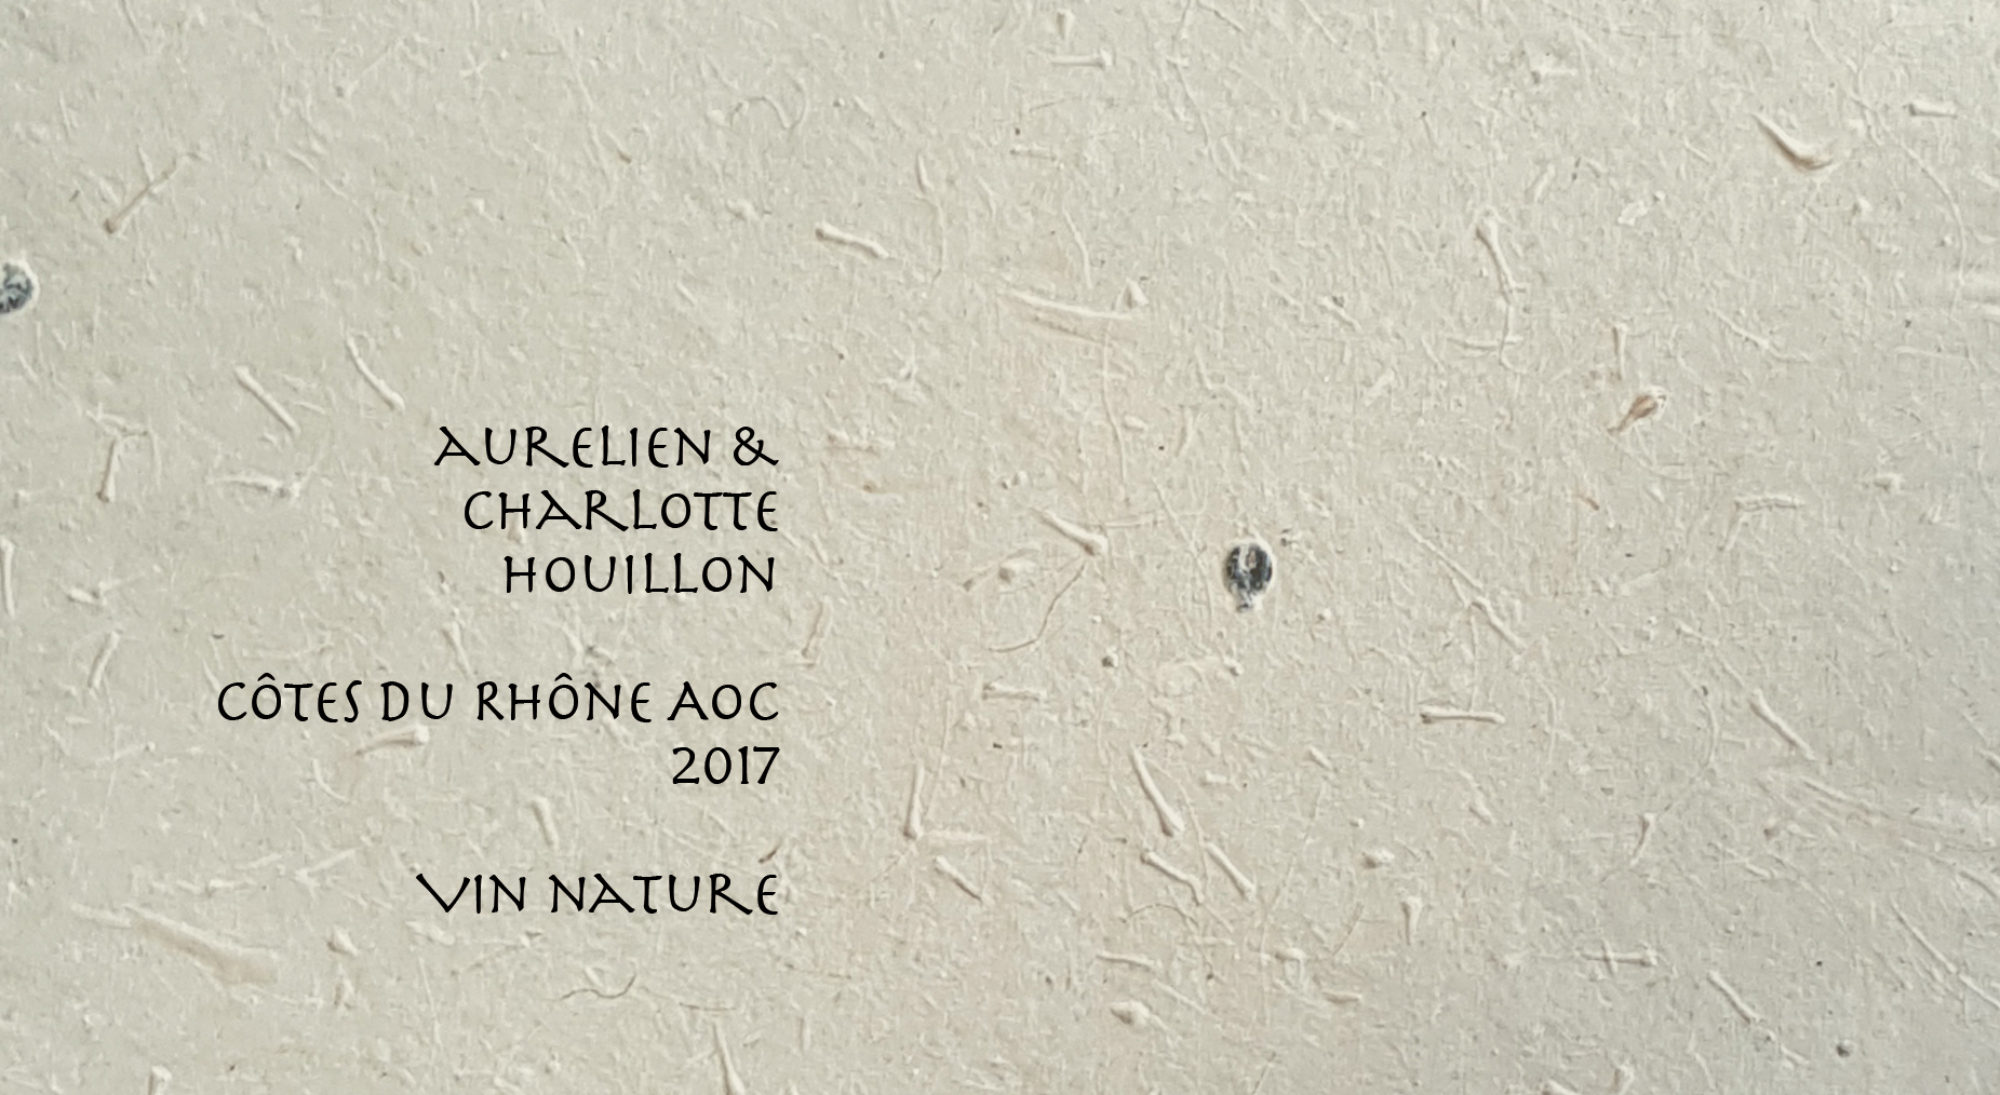 AURELIEN &
CHARLOTTE
HOUILLON
CÔTES DU RHÔNE AOC
2017
VIN NATURE